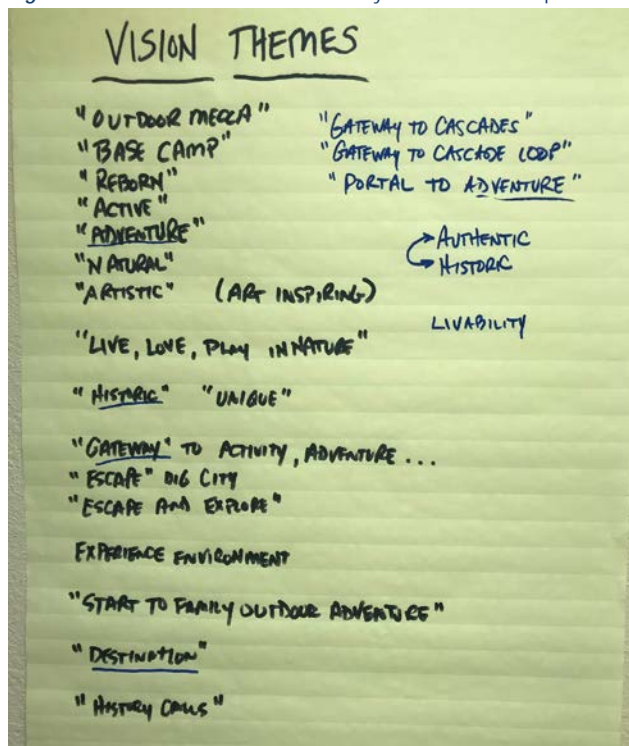 VISION THEMES
"OUTDOOR MECCA"
"BASE CAMP"
"REBORN"
"ACTIVE"
"ADVENTURE"
"NATURAL"
"ARTISTIC" (ART INSPIRING)
"LIVE, LOVE, PLAY IN NATURE"
"HISTORIC" "UNIQUE"
"GATEWAY" TO ACTIVITY, ADVENTURE...
"ESCAPE" BIG CITY
"ESCAPE AND EXPLORE"
EXPERIENCE ENVIRONMENT
"START TO FAMILY OUTDOOR ADVENTURE"
"DESTINATION"
"HISTORY CALLS"
"GATEWAY TO CASCADES"
"GATEWAY TO CASCADE LOOP"
"PORTAL TO ADVENTURE"
AUTHENTIC
HISTORIC
LIVABILITY